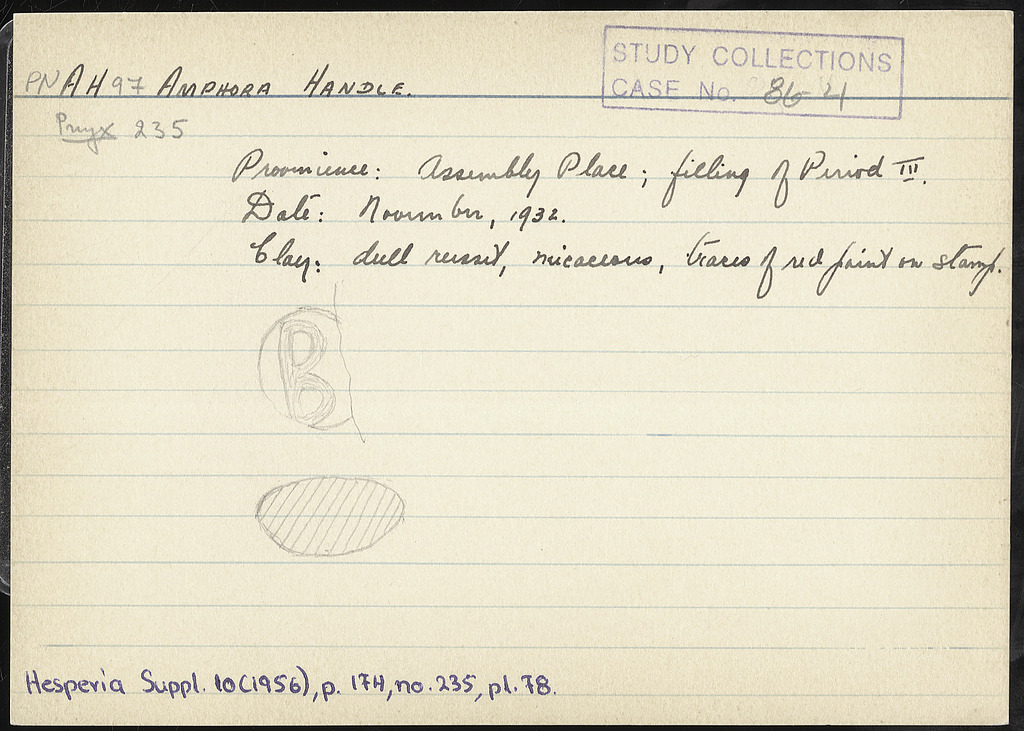 STUDY COLLECTIONS
CASE No. 86-21
PNAH97 AMPHORA HANDLE.
Pnyx 235
Provenience: Assembly Place; filling of Period III.
Date: November, 1932.
Clay: dull russet, micaceous, traces of red paint on stamp.
B
Hesperia Suppl. 10(1956), p. 174, no. 235, pl. 78.